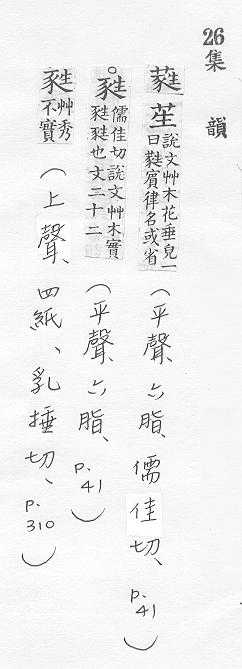 26 集韻
蕤苼說文艸木花垂皃一曰蕤賓律名或省(平聲、六脂、儒佳切、p.41)
。甤儒佳切說文艸木實甤甤也文二十二(平聲、六脂、p.41)
甤艸秀不實(上聲、四紙、乳捶切、p.310)